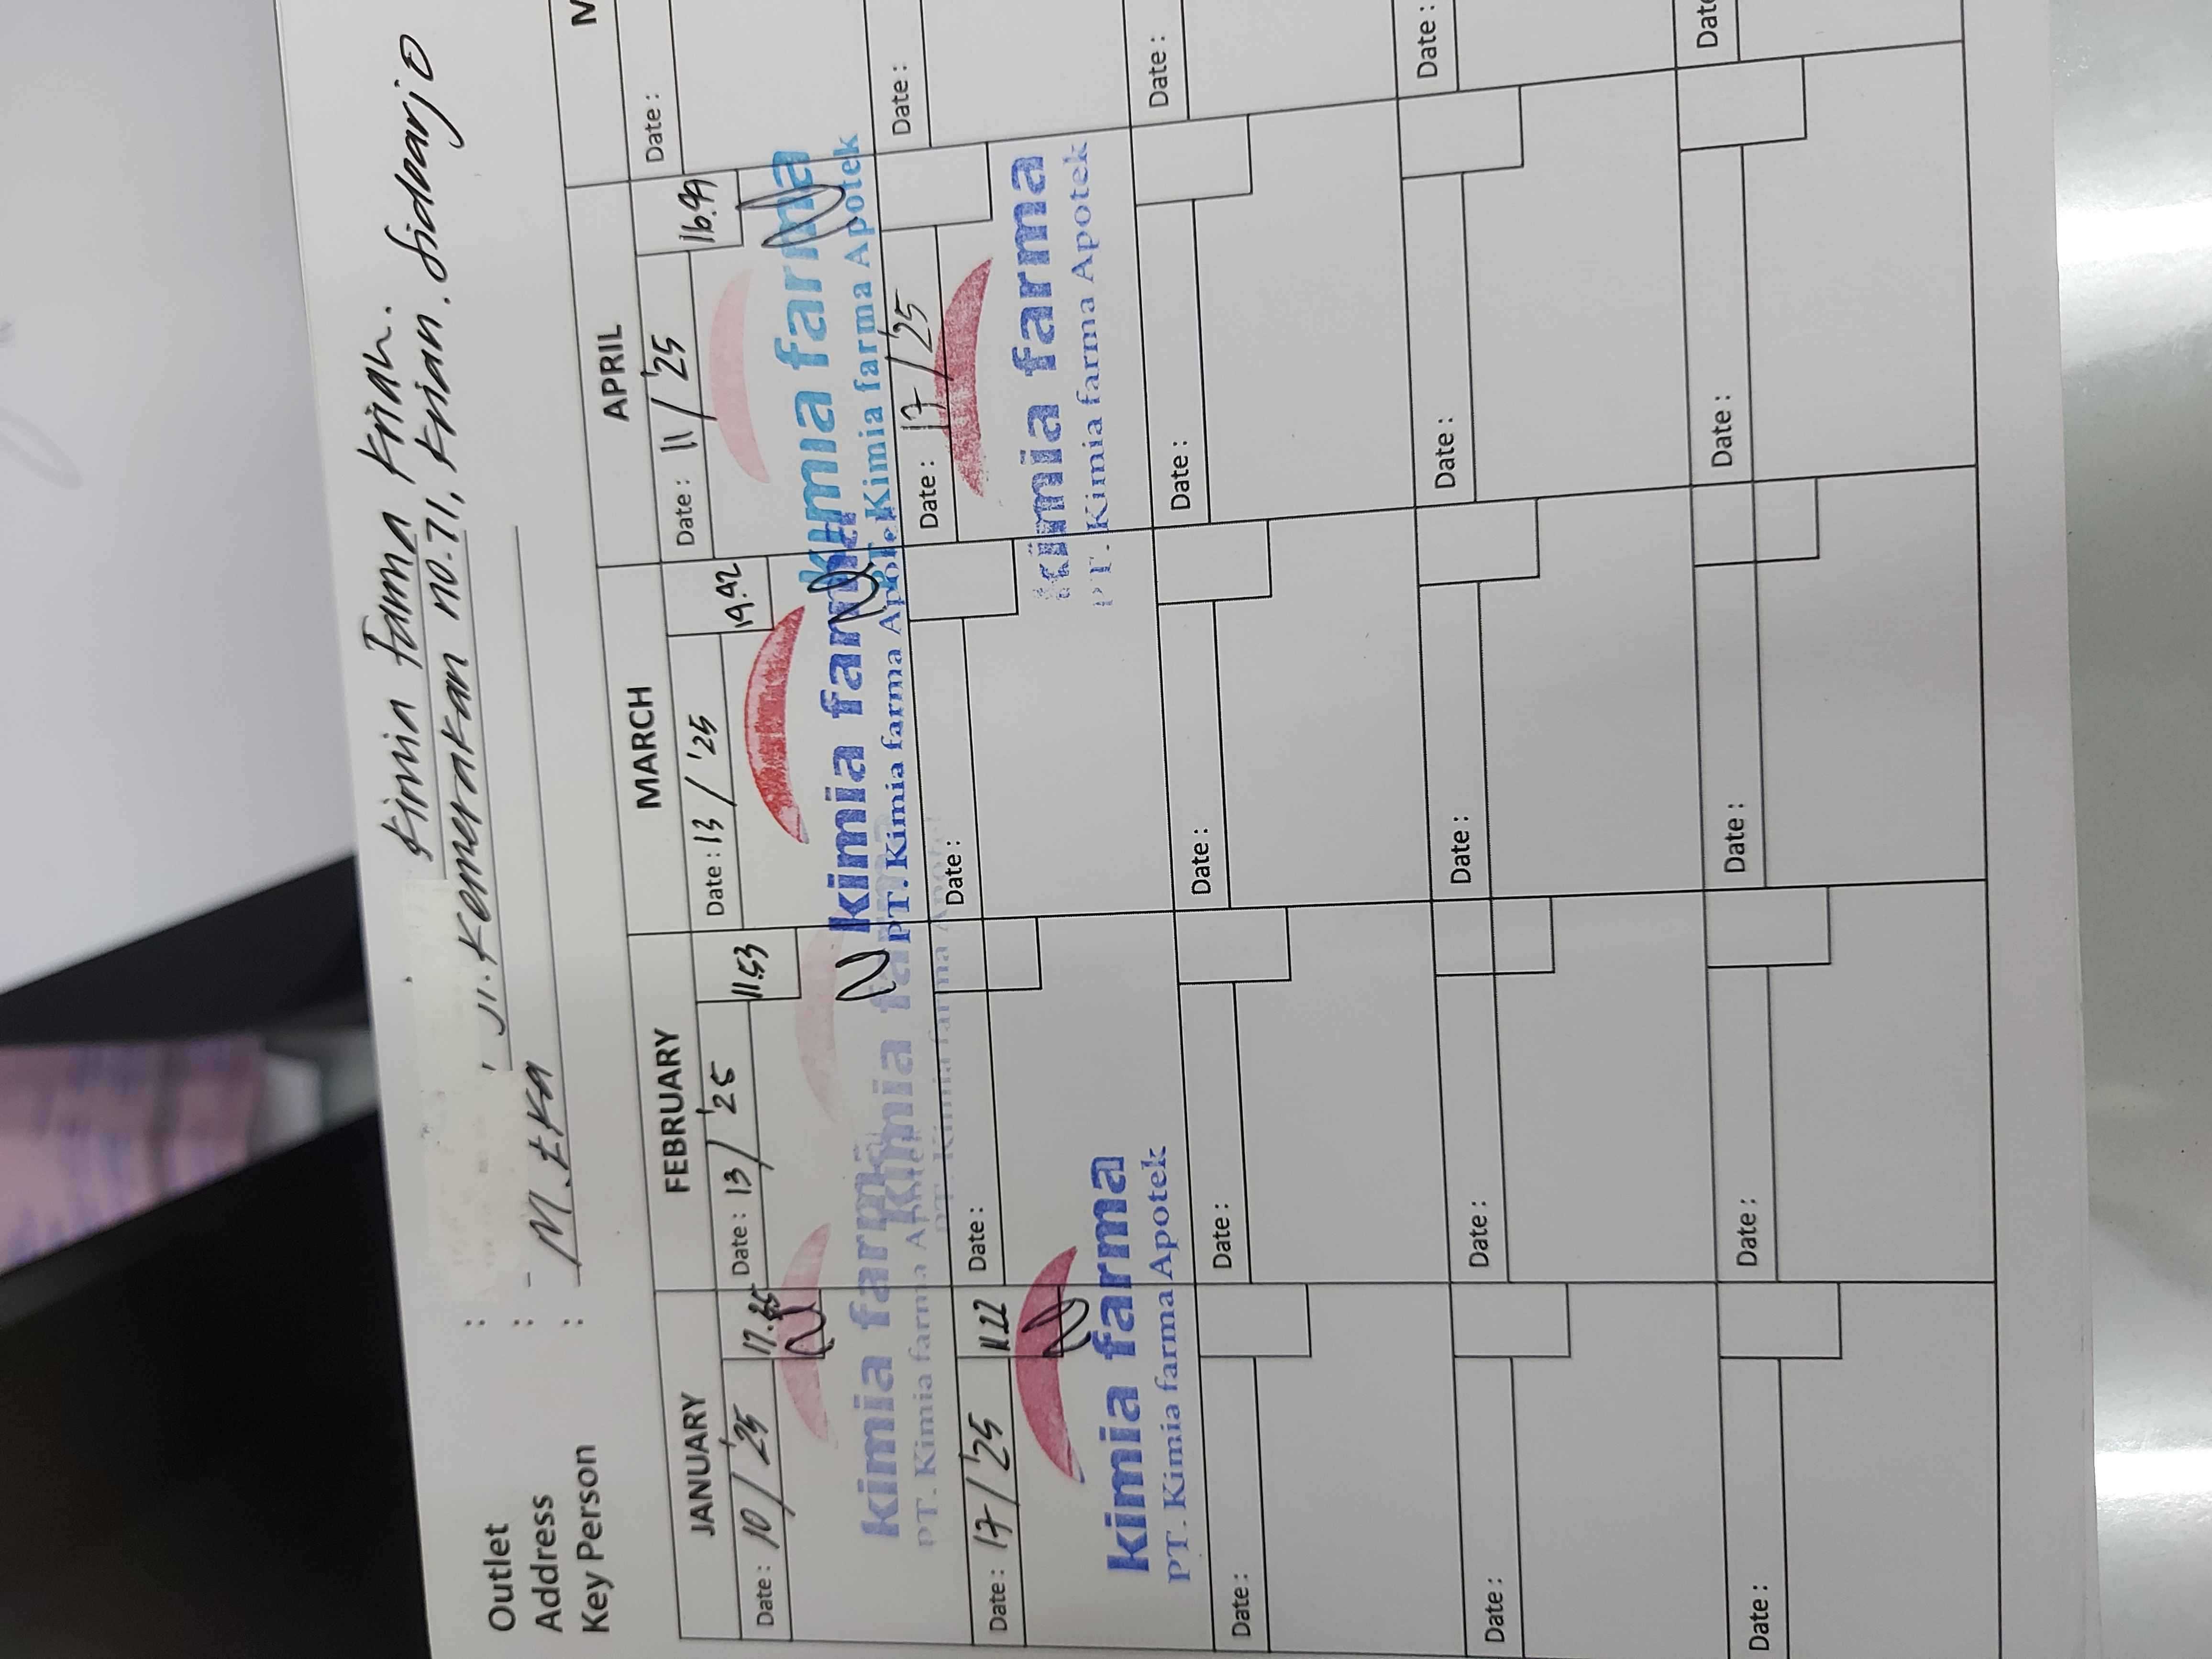 Outlet : Kimia Farma Krian.
Address : Jl. Kemerakan no.71, Krian. Sidoarjo
Key Person : M. EKA
JANUARY FEBRUARY MARCH APRIL
Date : 10 / '25 Date : 13 / '25 11.53 Date : 13 / '25 19.42 Date : 11 / '25 16.49 Date :
kimia farma kimia farma kimia farma kimia farma
PT. Kimia farma Apotek PT. Kimia farma Apotek PT. Kimia farma Apotek PT. Kimia farma Apotek
Date : 17 / '25 11.22 Date : Date : Date : 17 / '25 Date :
kimia farma kimia farma
PT. Kimia farma Apotek PT. Kimia farma Apotek
Date : Date : Date : Date : Date :
Date : Date : Date : Date : Date :
Date : Date : Date : Date : Date